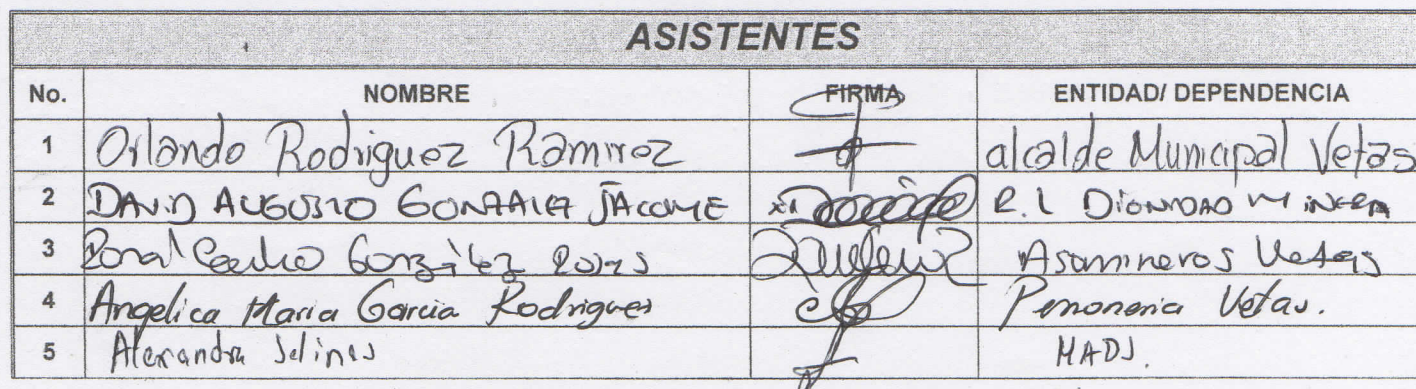 ASISTENTES
No. NOMBRE FIRMA ENTIDAD/ DEPENDENCIA
1 Orlando Rodriguez Ramirez alcalde Municipal Vetas
2 DAVID AUGUSTO GONZALEZ JÁCOME R.L DIGNIDAD MINERA
3 González Rojas Asomineros Vetas
4 Angelica Maria Garcia Rodriguez Personeria Vetas.
5 Alexandra Salinas MADS.